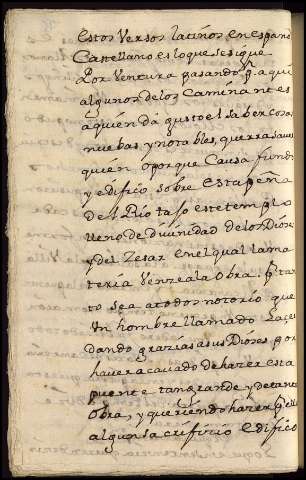 Estos Versos latinos en Espanol
Castellano es lo que se sigue
Por Ventura pasando p. aqui
algunos de los Caminantes
a quien da gusto el saber cosas
nuebas, y notables, querra saver
quien o por que Causa fundo
y edifico sobre esta peña
de el Rio taJo este templo
lleno de divinidad de los Dioses
y del Zesar en el qual la ma
teria Venze a la Obra. p. tan
to sea a todos notorio que
Un hombre llamado Lazer
dando grazias a sus Dioses por
haver acavado de hazer esta
puente tan grande y de tanta
Obra, y queriendo hazer p. ello
algun sacrifizio edifico